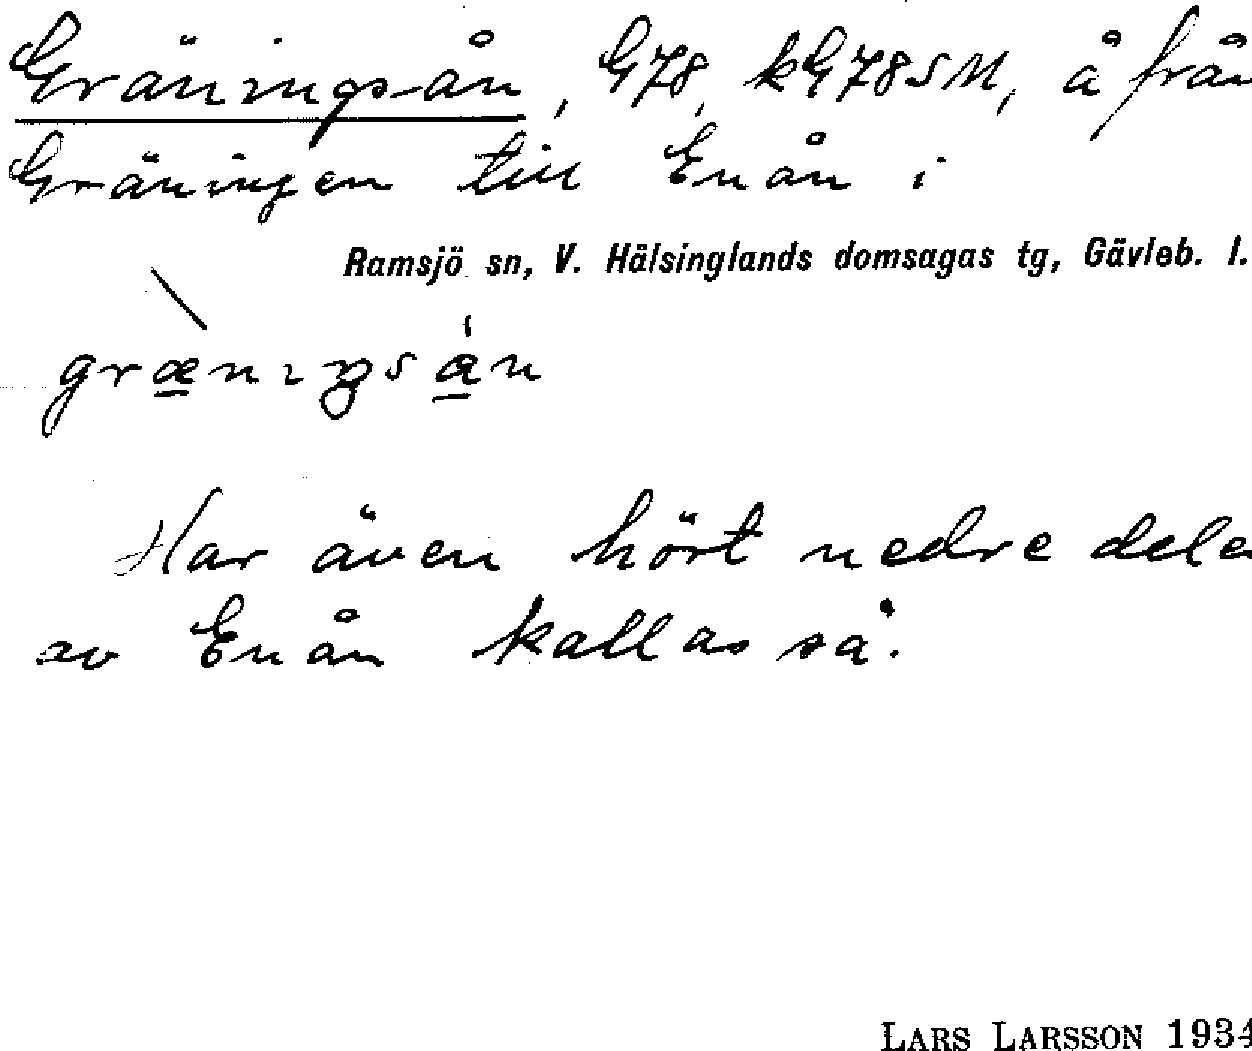 Gräningsån, G78, kG78SM, å från
Gräningen till Enån i
Ramsjö sn, V. Hälsinglands domsagas tg, Gävleb. l.
Har även hört nedre dele
av Enån kallas så.
LARS LARSSON 1934